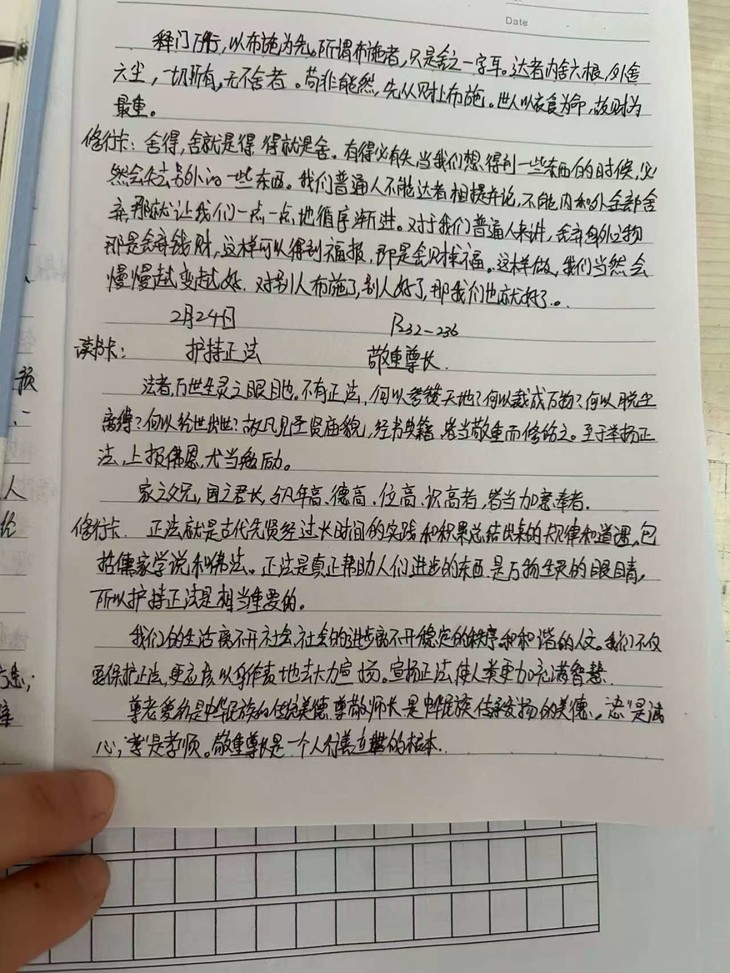 Date
释门万行，以布施为先。所谓布施者，只是舍之一字耳。达者内舍六根，外舍
六尘，一切所有，无不舍者。苟非能然，先从财上布施。世人以衣食为命，故财为
最重。
修行卡：舍得，舍就是得，得就是舍。有得必有失，当我们想得到一些东西的时候，必
然会失去另外的一些东西。我们普通人不能达者相提并论，不能内和外全部舍
弃，那就让我们一点一点地循序渐进。对于我们普通人来讲，舍弃身外之物
那是舍弃钱财，这样可以得到福报，即是舍财择福。这样做，我们当然会
慢慢越变越好。对别人布施了，别人好了，那我们也就好了。
2月24日 P232-236
读书卡： 护持正法 敬重尊长
法者，万世生灵之眼目也。不有正法，何以参赞天地？何以裁成万物？何以脱尘
离缚？何以经世出世？故凡见圣贤庙貌，经书典籍，皆当敬重而修饬之。至于举扬正
法，上报佛恩，尤当勉励。
家之父兄，国之君长，与凡年高、德高、位高、识高者，皆当加意奉者.
修行卡. 正法就是古代先贤经过长时间的实践和积累总结出来的规律和道理，包
括儒家学说和佛法。正法是真正帮助人们进步的东西.是万物生灵的眼睛，
所以护持正法是相当重要的。
我们的生活离不开社会，社会的进步离不开稳定的秩序和和谐的人文。我们不仅
要保护正法，更应该以身作责地去大力宣扬。宣扬正法，使人类更加充满智慧.
尊老爱幼是中华民族的传统美德，尊敬师长是中华民族传承发扬的美德。“忠”是满
心，“孝”是孝顺。敬重尊长是一个人行善立世的根本.